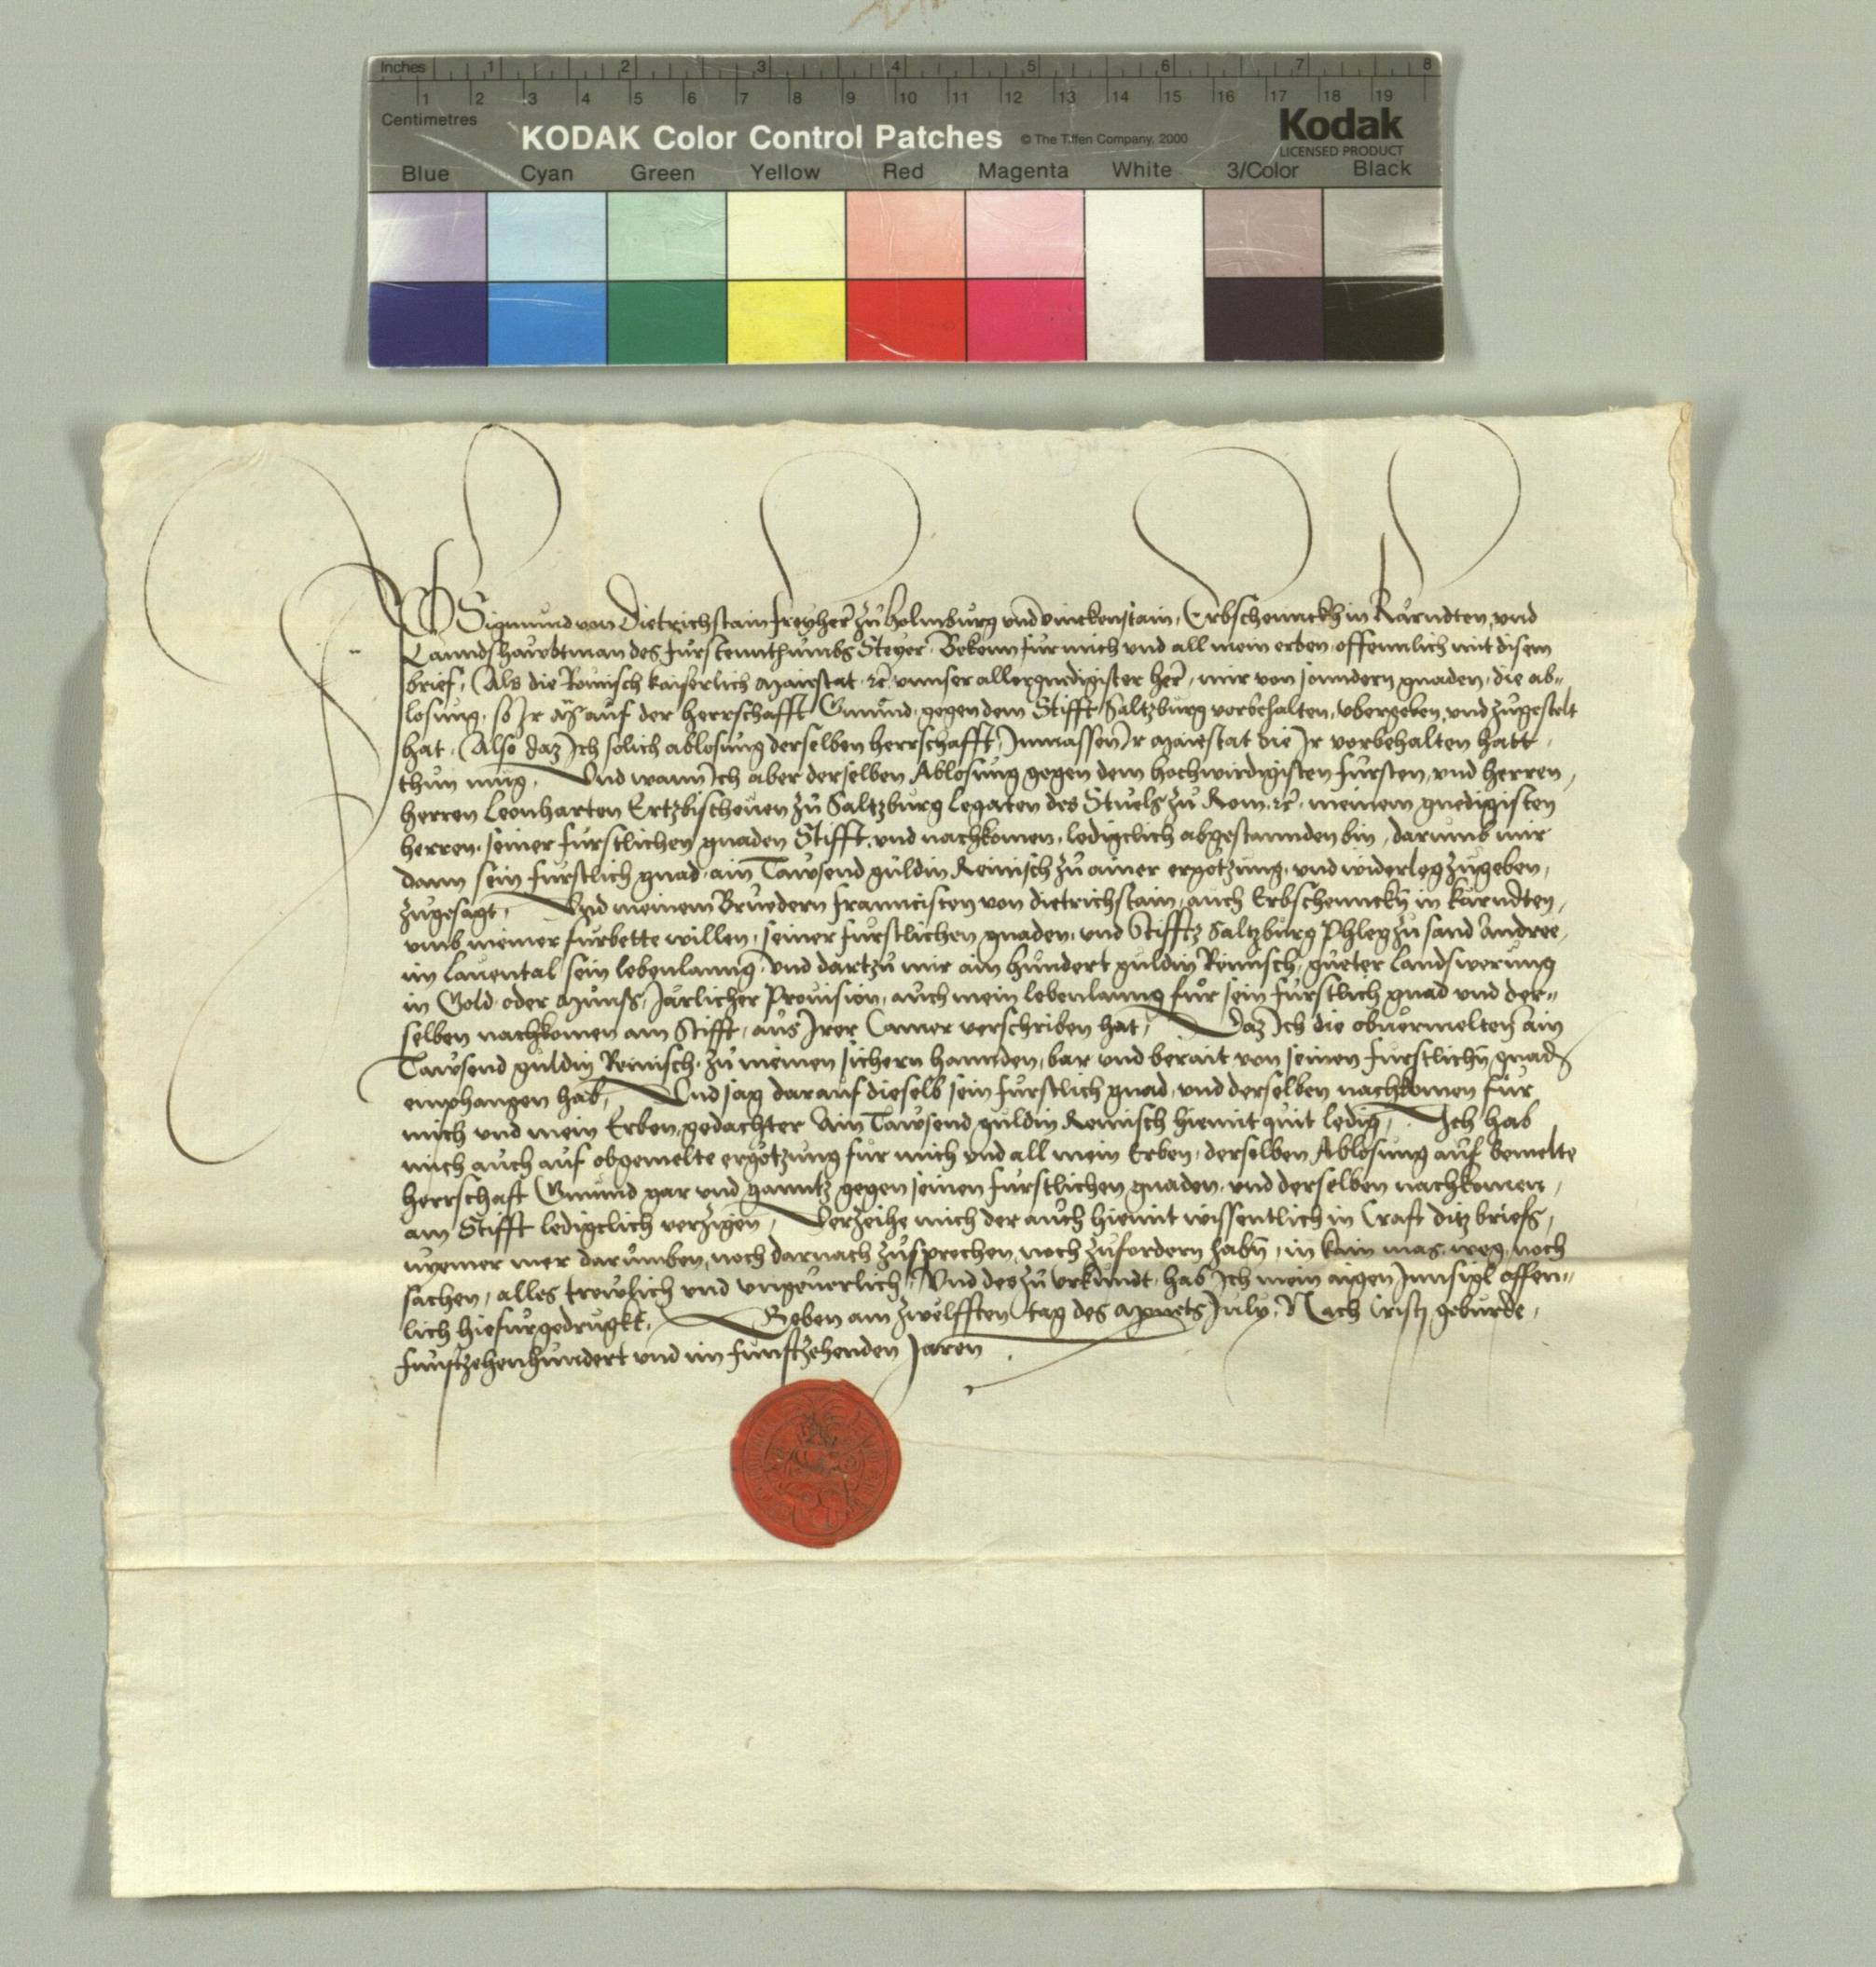 Inches 1 2 3 4 5 6 7 8
1 2 3 4 5 6 7 8 9 10 11 12 13 14 15 16 17 18 19
Centimetres
KODAK Color Control Patches © The Tiffen Company, 2000 Kodak
LICENSED PRODUCT
Blue Cyan Green Yellow Red Magenta White 3/Color Black
Sigmund von Dietrichstain freyher zů Holmburg vnd vinckenstain, Erbschennckh in Kärndten, vnd
Lanndshaubtman des fürstennthumbs Steyer, Bekenn für mich vnd all mein erben, offennlich mit disem
brief, Als die Römisch kaiserlich Maiestat ⁊c̄ vnnser allergnedigister her, mir von sonndern gnaden, die ab-
losung, so Ir auf der herrschafft Gmünd, gegen dem Stifft Saltzburg vorbehalten, vbergeben, vnd zůgestelt
hat, Also daz Ich solich ablosung derselben herrschafft, Inmassen Ir Maiestat die Ir vorbehalten hatt,
thun müg, Vnd wann Ich aber derselben Ablosung gegen dem hochwirdigisten fürsten, vnd herren,
herren Leonharten Ertzbischouen zů Saltzburg Legaten des Stuels zů Rom ⁊c̄ meinem gnedigisten
herren, seiner fürstlichen gnaden Stifft, vnd nachkomen, lediclich abgestannden bin, darumb mir
dann sein fürstlich gnad, ain Tawsend guldin Reinisch zů ainer ergötzung, vnd widerleg zůgeben,
zůgesagt, Vnd meinem Brüedern Franncisten von dietrichstain, auch Erbschennckh in kärndten,
vmb meiner fürbette willen, seiner fürstlichen gnaden, vnd Stiffts Saltzburg Phleg zů sand Andree,
im Lauental sein lebenlanng, vnd dartzů mir ain hundert guldin Reinisch, gueter landswerung
in Gold oder Münss, Järlicher Prouision, auch mein lebenlanng für sein fürstlich gnad vnd der-
selben nachkomen am Stifft, aus Irer Camer verschriben hat, Daz Ich die obuermelten ain
Tawsend guldin Reinisch, zů meinen sichern hannden, bar vnd berait von seinen fürstlichen gnad
emphangen hab, Vnd sag darauf dieselb sein fürstlich gnad, vnd derselben nachkomen für
mich vnd mein Erben, gedachter Ain Tawsend guldin Reinisch hiemit quit ledig, Ich hab
mich auch auf obgemelte ergötzung für mich vnd all mein Erben, derselben Ablosung auf bemelte
herrschaft Gmünd gar vnd ganntz gegen seinen fürstlichen gnaden, vnd derselben nachkomen,
am Stifft lediclich verzigen, Verzeihe mich der auch hiemit wissentlich in Craft ditz briefs,
nyemer mer darumben, noch darnach zůsprechen, noch zůfordern habn, in kain mas, weg, noch
sachen, alles trewlich vnd vngeuerlich, Vnd des zů vrkundt, hab Ich mein aigen Innsigl offen-
lich hiefür gedrugkt, Geben am zwelfften tag des Monets July, Nach Cristi geburde,
funftzehenhundert vnd im funftzehenden Jaren.